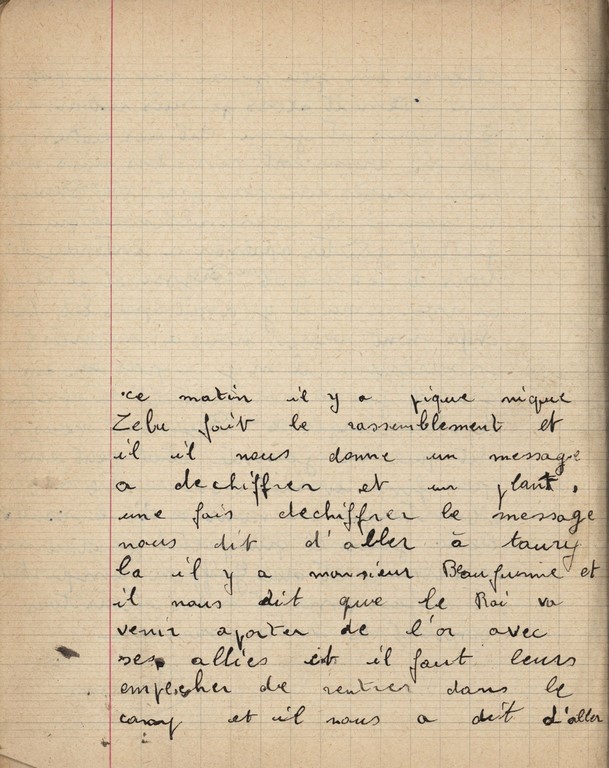 ce matin il y a pique nique
Zebu fait le rassemblement et
il il nous donne un message
a dechiffrer et un plant,
une fois dechiffrer le message
nous dit d'aller à taury
la il y a monsieur et
il nous dit que le Roi va
venir aporter de l'or avec
ses alliés et il faut leurs
empecher de rentrer dans le
camp et il nous a dit d'aller